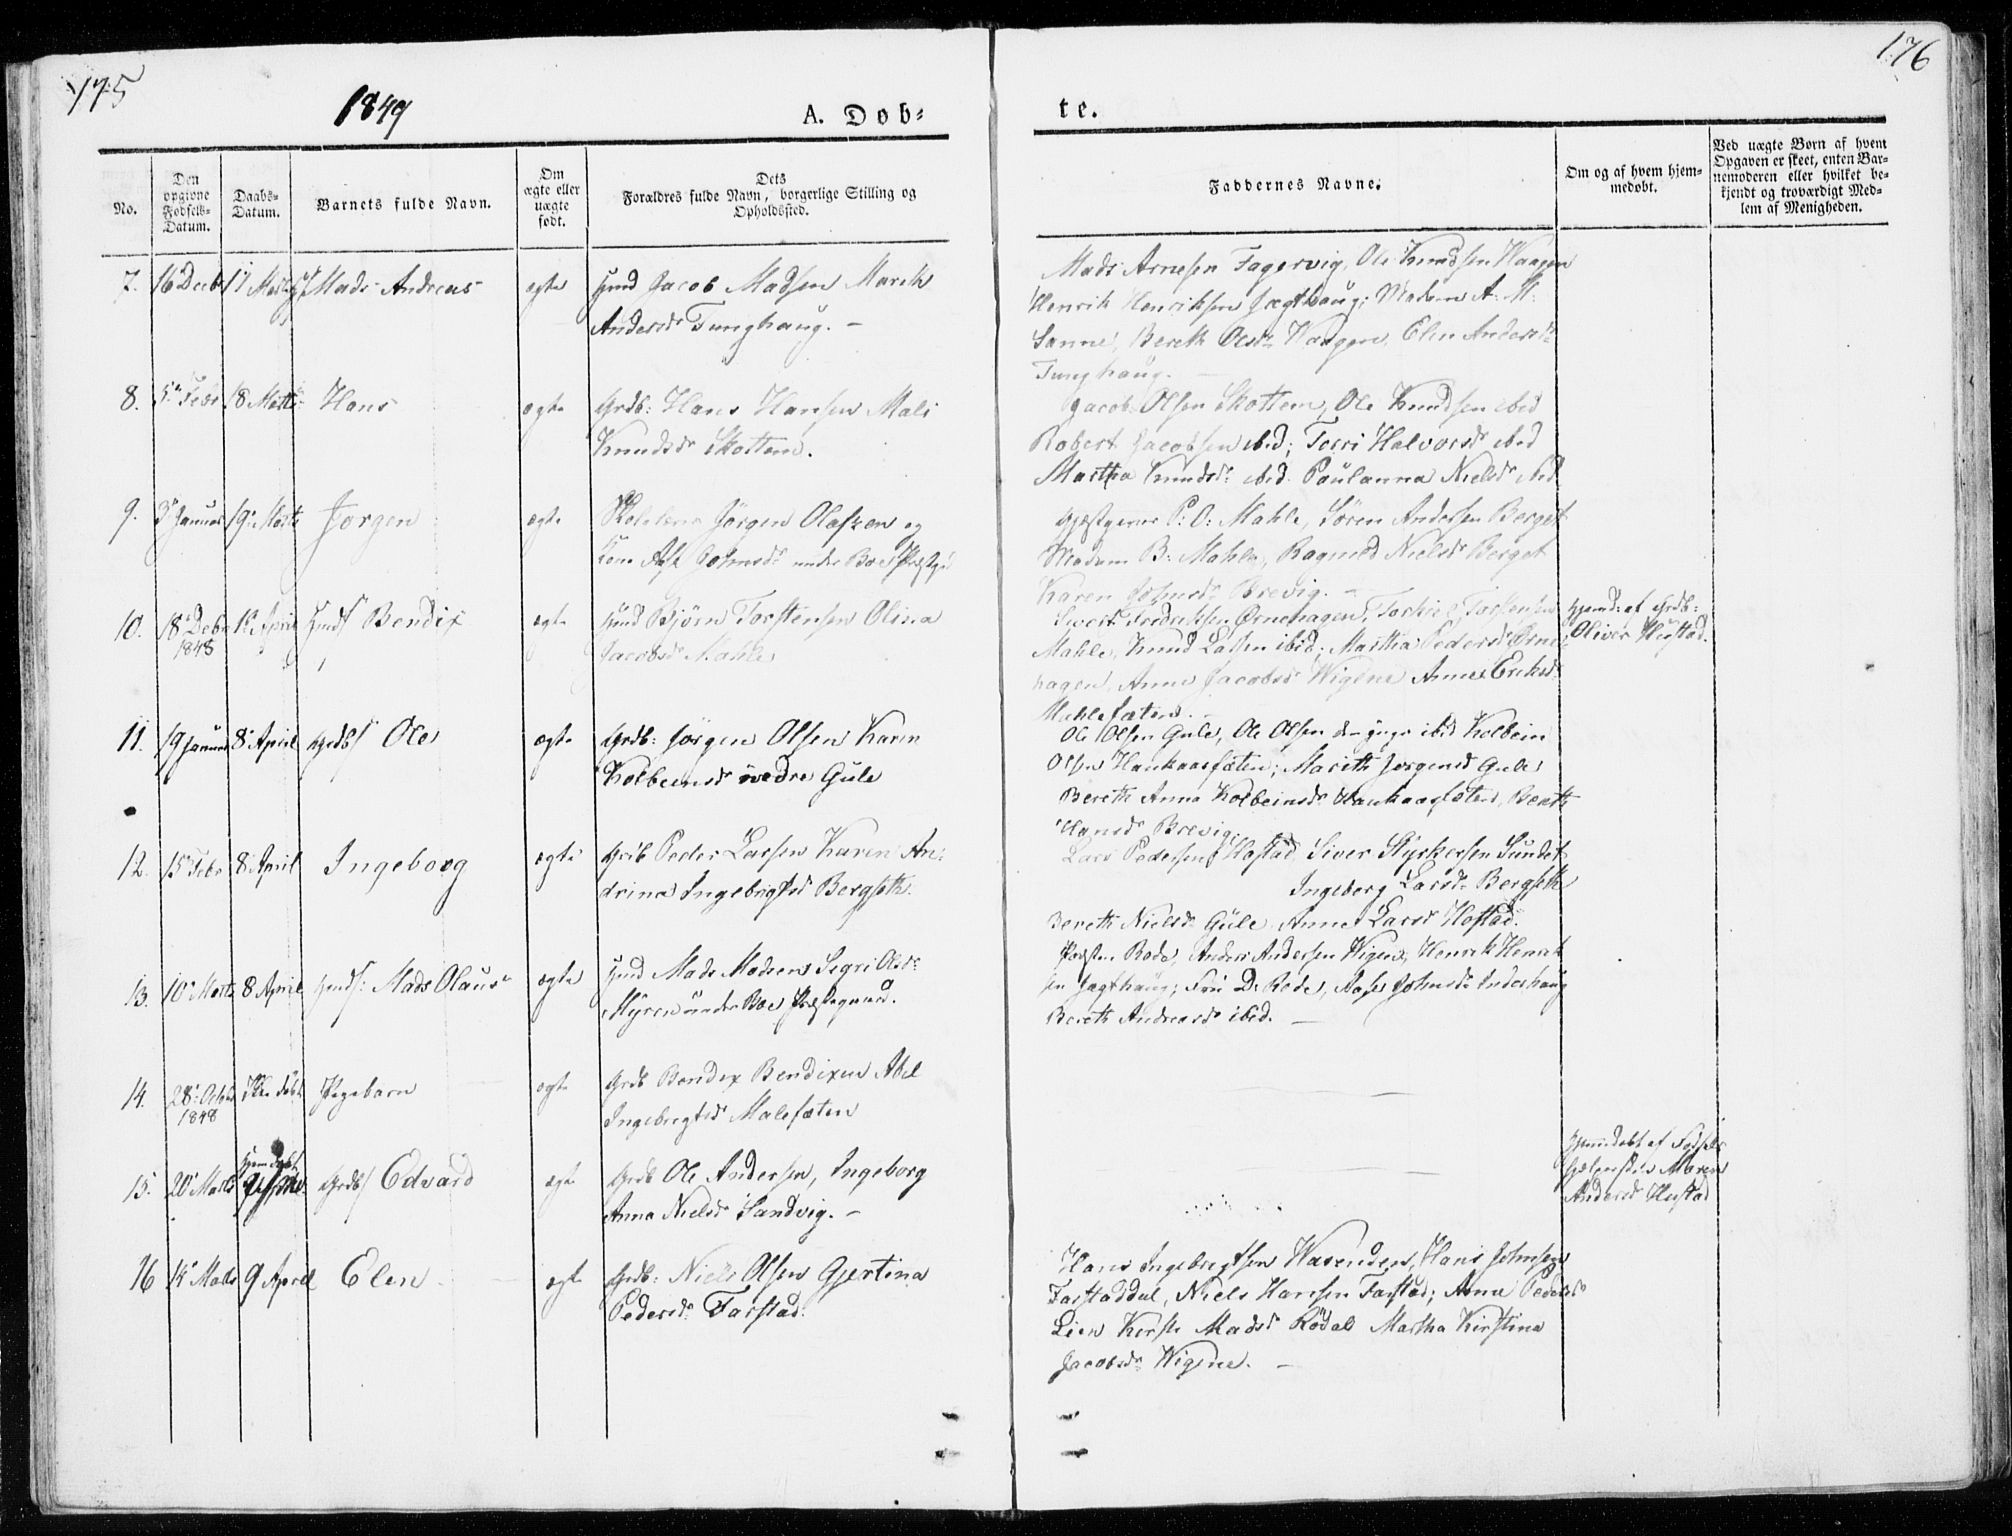 175
1849
A. Døb-
te.
176
No.
Den opgivne Fødsels-Datum.
Daabs-Datum.
Barnets fulde Navn.
Om ægte eller uægte født.
Dets Forældres fulde Navn, borgerlige Stilling og Opholdssted.
Faddernes Navne.
Om og af hvem hjem-medøbt.
Ved uægte Børn af hvem Opgaven er skeet, enten Bar-nemoderen eller hvilket be-kjendt og troværdigt Med-lem af Menigheden.
7. 16 Decb Mads Andreas ægte Jacob Madsen Mareth
Andersdr Tunghaug. -
Mads Arnesen Fagervig, Ole Knudsen Waagen
Henrik Henriksen Jægthaug; Madam A. M.
Sanne, Bereth Olsdr Waagen, Elen Andersdr
Tunghaug.
8. 5 Febr 18 Marts Hans ægte Grdb: Hans Hansen Mali
Knudsdr Skottem.
Jacob Olsen Skottem, Ole Knudsen ibid
Robert Jacobsen ibid; Torri Halvorsdr ibid
Martha Knudsdr ibid. Paulanna Nielsdr ibid
9. 3 Januar 19 Marts Jørgen ægte Jørgen Olafsen og
Kone Johnsdr under Boe
P: O: Mahle, Søren Andersen Berget
Madam B: Mahle, Ragnild Nielsdr Berget
Karen Johnsdr Brevig. -
10. 18 Debr 1848 April Bendix ægte Bjørn Torstensen Olina
Jacobsdr Mahle
Sivert Fredriksen Ørnehagen, Torstensen
Mahle, Knud Lassen ibid; Martha Pedersdr Ørne
hagen, Anne Jacobsdr Wigene Anne Eriksdr
Mahlesæter. -
Hjemd: af Grdb:
Oliver Hustad.
11. 19 Januar 8 April Grdb Ole ægte Grdb: Jørgen Olsen Karen
Kolbeinsdr nedre Gule
Ole Olsen Gule, Ole Olsen d yngre ibid Kolbein
Olsen Haukaassæter; Marith Jørgensdr Gule
Bereth Anna Kolbeinsdr Haukaassæter, Bereth
Hansdr Brevig.
12. 15 Febr 8 April Ingeborg ægte Grdb Peder Larsen Karen An-
drina Ingebrigtsd Bergseth.
Lars Pedersen Hostad, Siver Styrkersen Sundet
Ingeborg Larsdr Bergseth
Bereth Nielsdr Gule Anne Larsdr Hostad.
13. 10 Marts 8 April Mads Olaus ægte Mads Madsen Sigri Olsdr
Myren under Boe Præstegaard.
Presten Rode, Anders Andersen Wigen, Henrik Henrik
sen Jægthaug; Fru D. Rode, Aase Johnsdr Inderhaug
Bereth Andreasdr ibid. -
14. 28 Octbr 1848 Ikke døbt Pigebarn ægte Grdb Bendix Bendixen Abel
Ingebrigtsdr Malesæter
15. 20 Marts Hjemdøbt Grdb Edvard ægte Grdb Ole Andersen, Ingeborg
Anna Nielsdr Sandvig. -
Hjemmedøbt af Fødsels
Hjelpersken Maren
Andersd Hustad
16 Marts 9 April Elen ægte Grdb: Niels Olsen Gjertina
Pedersdr Farstad.
Hans Ingebrigtsen Wasenden, Hans Johnsen
Farstaddal, Niels Hansen Farstad; Anne Pedersdr
Lien Kirsti Madsdr Rødal Martha Kirstina
Jacobsdr Wigene. -